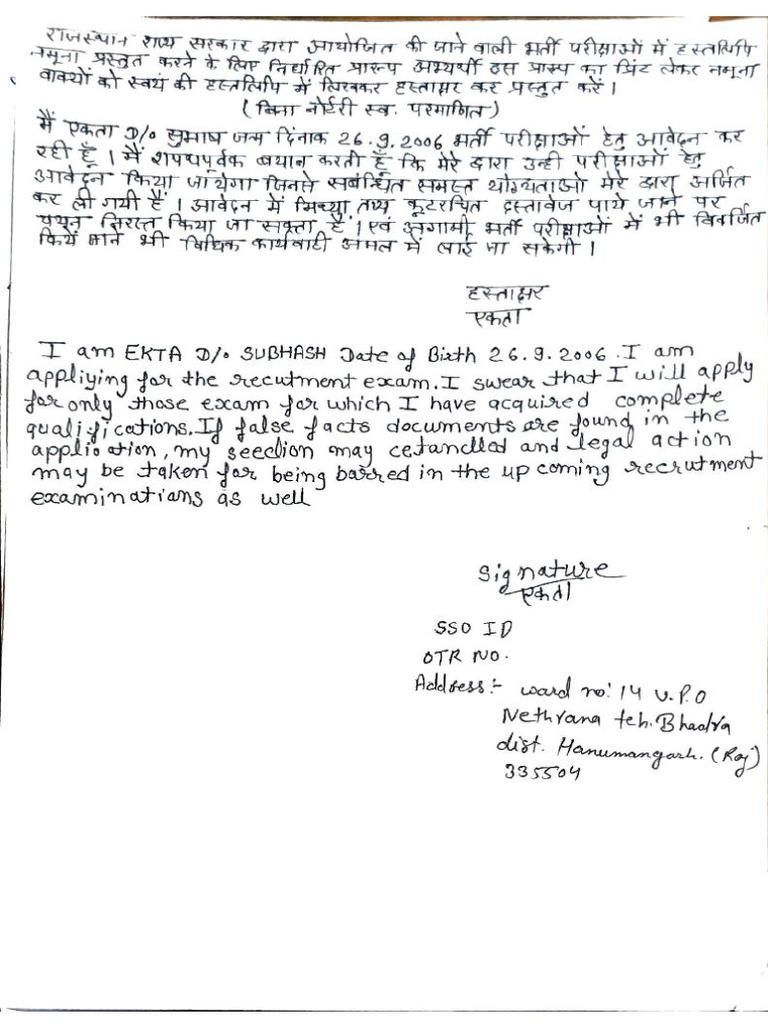 राजस्थान राज्य सरकार द्वारा आयोजित की जाने वाली भर्ती परीक्षाओं में हस्तलिपि
नमूना प्रस्तुत करने के लिए निर्धारित प्रारूप अभ्यर्थी इस प्रारूप का प्रिंट लेकर नमूना
वाक्यों को स्वयं की हस्तलिपि में लिखकर हस्ताक्षर कर प्रस्तुत करें ।
( बिना नोर्टरी स्व. परमाणित )
मैं एकता D/o सुभाष जन्म दिनाक 26.9.2006 भर्ती परीक्षाओं हेतु आवेदन कर
रही हूँ । मैं शपथपूर्वक बयान करती हूँ कि मेरे द्वारा उन्ही परीक्षाओं हेतु
आवेदन किया जायेगा जिनसे सबंन्धित समस्त योग्यताओ मेरे द्वारा अर्जित
कर ली गयी हैं । आवेदन में मिथ्या तथ्य कूटरचित दस्तावेज पाये जाने पर
चयन निरस्त किया जा सकता है । एवं अगामी भर्ती परीक्षाओं में भी विवर्जित
किये जाने भी विधिक कार्यवाही अमल में लाई जा सकेगी ।
हस्ताक्षर
एकता
I am EKTA D/o SUBHASH Date of Birth 26.9.2006 . I am
appliying for the recutment exam. I swear that I will apply
for only those exam for which I have acquired complete
qualifications. If false facts documents are found in the
appliotion, my seedion may cetandled and legal action
may be taken for being barred in the up coming recrutment
examinatians as well
Signature
एकता
SSO ID
OTR NO.
Address :- ward no: 14 V.P.O
Nethrana teh. Bhadra
dist. Hanumangarh. (Raj)
335504